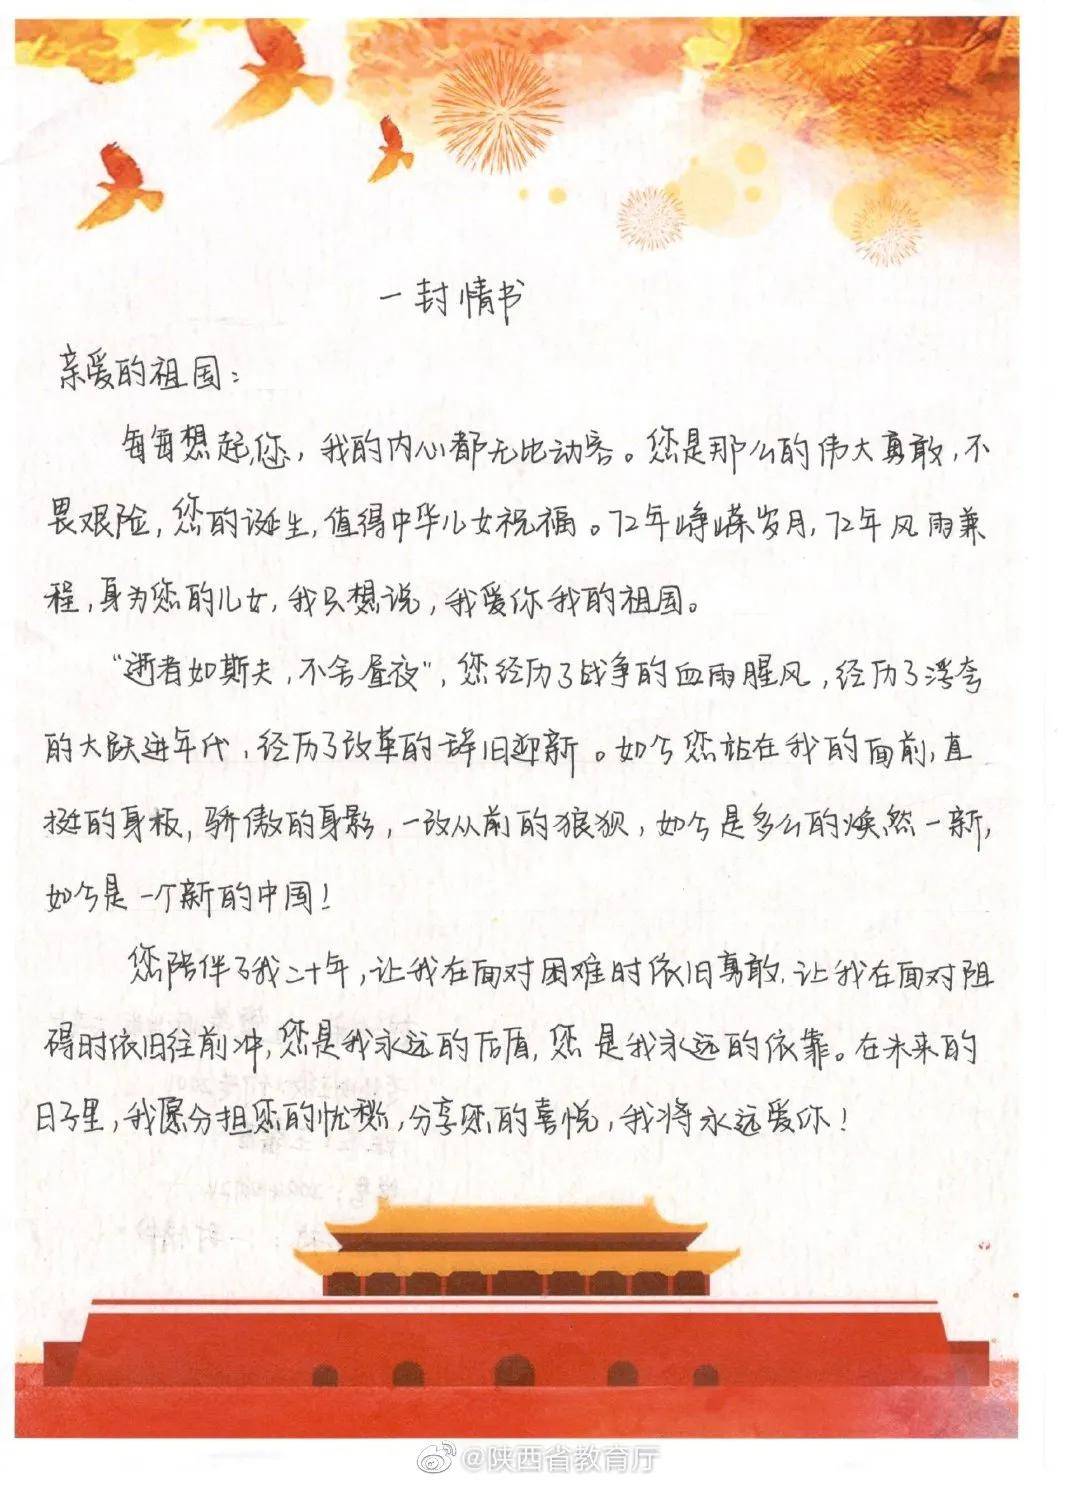 一封情书
亲爱的祖国：
每每想起您，我的内心都无比动容。您是那么的伟大勇敢，不
畏艰险，您的诞生，值得中华儿女祝福。72年峥嵘岁月，72年风雨兼
程，身为您的儿女，我只想说，我爱你我的祖国。
“逝者如斯夫，不舍昼夜”，您经历了战争的血雨腥风，经历了浮夸
的大跃进年代，经历了改革的辞旧迎新。如今您站在我的面前，直
挺的身板，骄傲的身影，一改从前的狼狈，如今是多么的焕然一新，
如今是一个新的中国！
您陪伴了我二十年，让我在面对困难时依旧勇敢，让我在面对阻
碍时依旧往前冲，您是我永远的后盾，您是我永远的依靠。在未来的
日子里，我愿分担您的忧愁，分享您的喜悦，我将永远爱你！
@陕西省教育厅